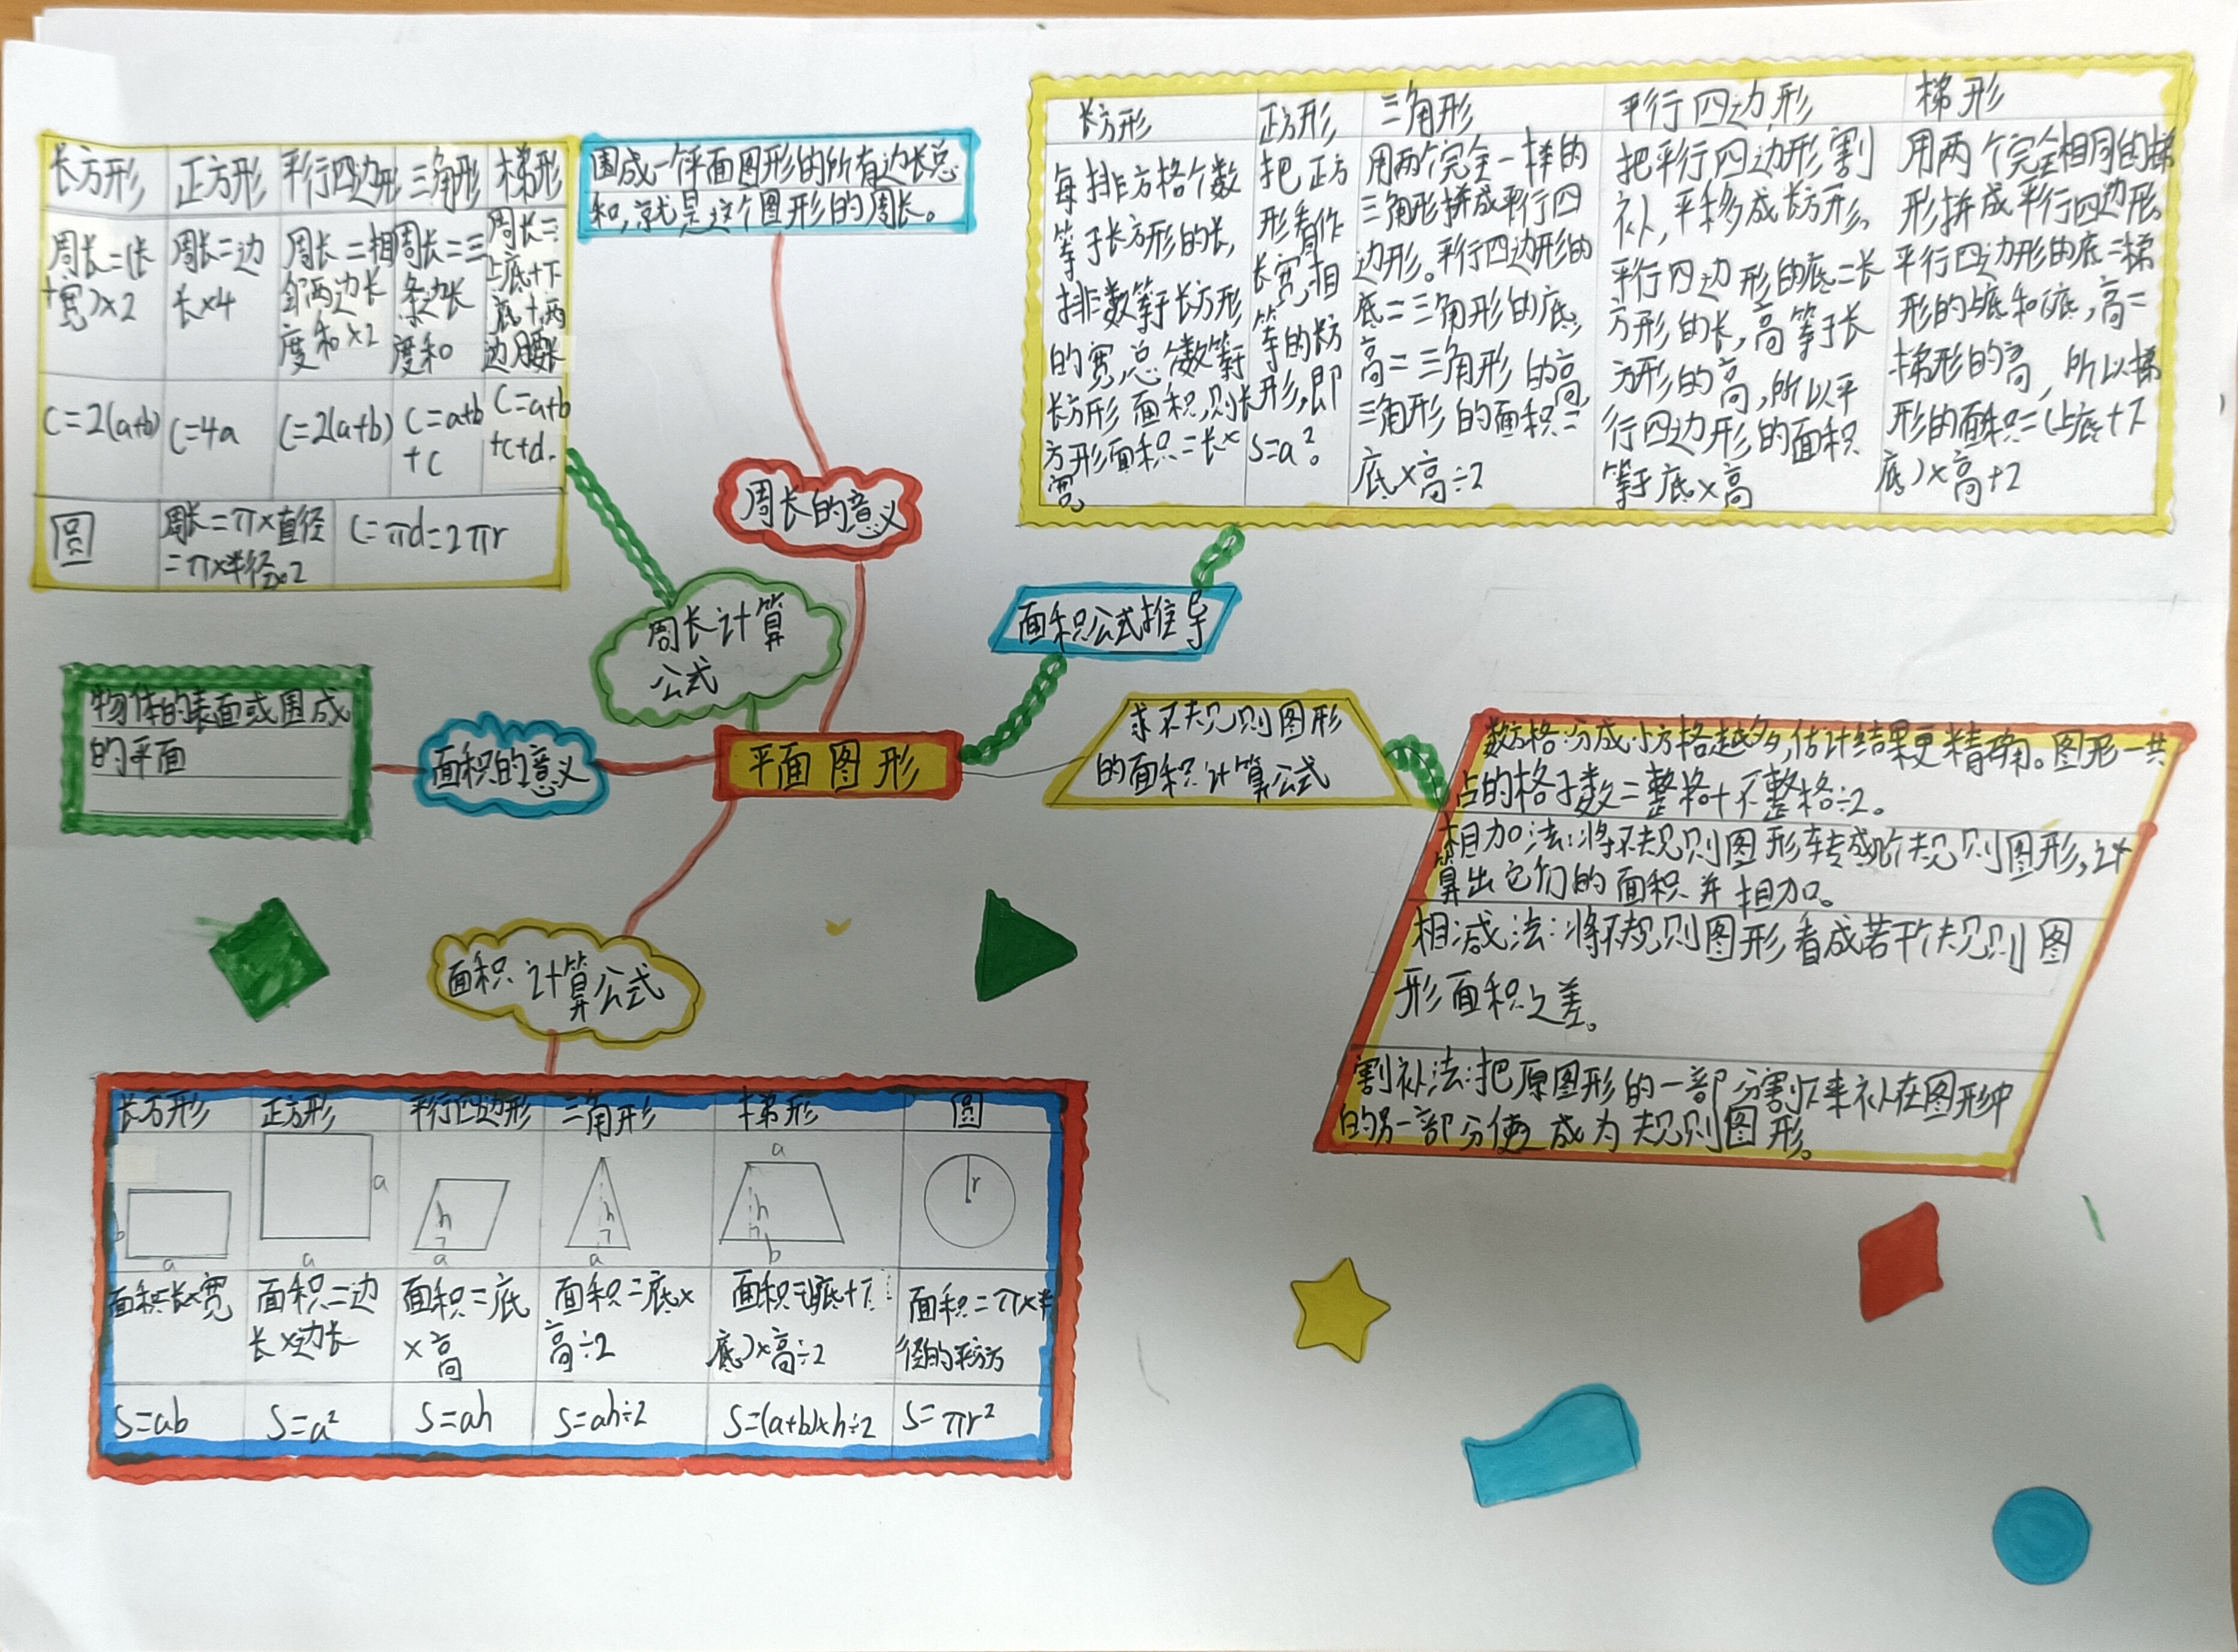 长方形
正方形
平行四边形
三角形
梯形
周长=(长
+宽)×2
周长=边
长×4
周长=相
邻两边长
度和×2
周长=三
条边长
度和
周长=
上底+下
底+两
边腰长
C=2(a+b)
C=4a
C=2(a+b)
C=a+b
+c
C=a+b
+c+d.
圆
周长=π×直径
=π×半径×2
C=πd=2πr
围成一个平面图形的所有边长总
和,就是这个图形的周长。
周长的意义
周长计算
公式
长方形
正方形
三角形
平行四边形
梯形
每排方格个数
等于长方形的长,
排数等于长方形
的宽,总个数等于
长方形面积,则长
方形面积=长×
宽
把正方
形看作
长宽相
等的长方
形,即
S=a²。
用两个完全一样的
三角形拼成平行四
边形。平行四边形的
底=三角形的底,
高=三角形的高,
三角形的面积=
底×高÷2
把平行四边形割
补,平移成长方形。
平行四边形的底=长
方形的长,高等于长
方形的高,所以平
行四边形的面积
等于底×高
用两个完全相同的梯
形拼成平行四边形。
平行四边形的底=梯
形的上底和下底,高=
梯形的高,所以梯
形的面积=(上底+下
底)×高÷2
面积公式推导
物体的表面或围成
的平面
面积的意义
平面图形
求不规则图形
的面积计算公式
数方格:分成小方格越多,估计结果更精确。图形一共
占的格子数=整格+不整格÷2。
相加法:将不规则图形转成几个规则图形,计
算出它们的面积并相加。
相减法:将不规则图形看成若干个规则图
形面积之差。
割补法:把原图形的一部分割下来补在图形中
的另一部分使之成为规则图形。
面积计算公式
长方形
正方形
平行四边形
三角形
梯形
圆
b
a
a
a
h
a
h
a
a
h
b
r
面积=长×宽
面积=边
长×边长
面积=底
×高
面积=底×
高÷2
面积=(上底+下
底)×高÷2
面积=π×半
径的平方
S=ab
S=a²
S=ah
S=ah÷2
S=(a+b)×h÷2
S=πr²